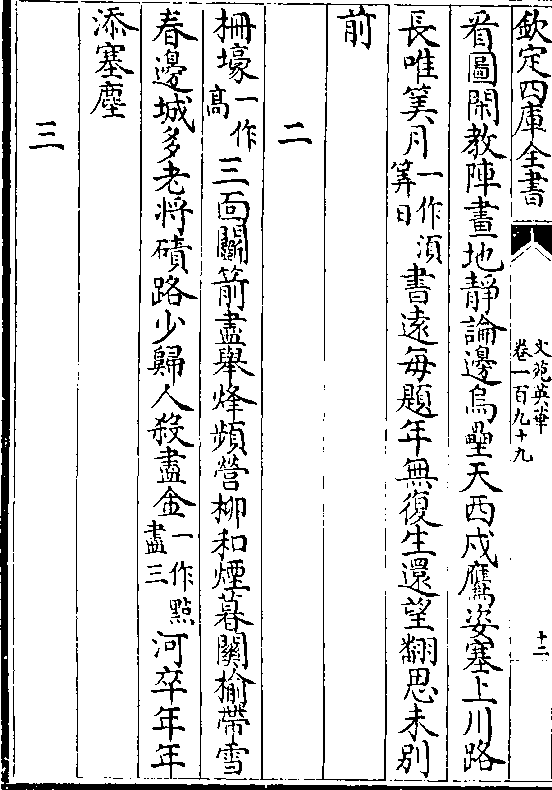 欽定四庫全書
文苑英華
卷一百九十九
十二
看圖閑教陣畫地靜論邊烏壘天西戍鷹姿塞上川路
長唯筭月一作湏筭日書遠每題年無復生還望翻思未別
前
二
柵壕一作高三面鬭箭盡舉烽頻營柳和煙暮關榆帶雪
春邊城多老將磧路少歸人殺盡金一作點盡三河卒年年
添塞塵
三